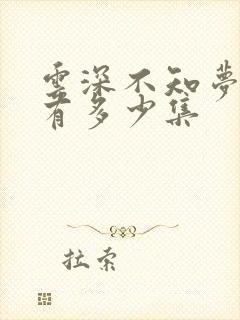 云深不知梦
有多少集
拉索